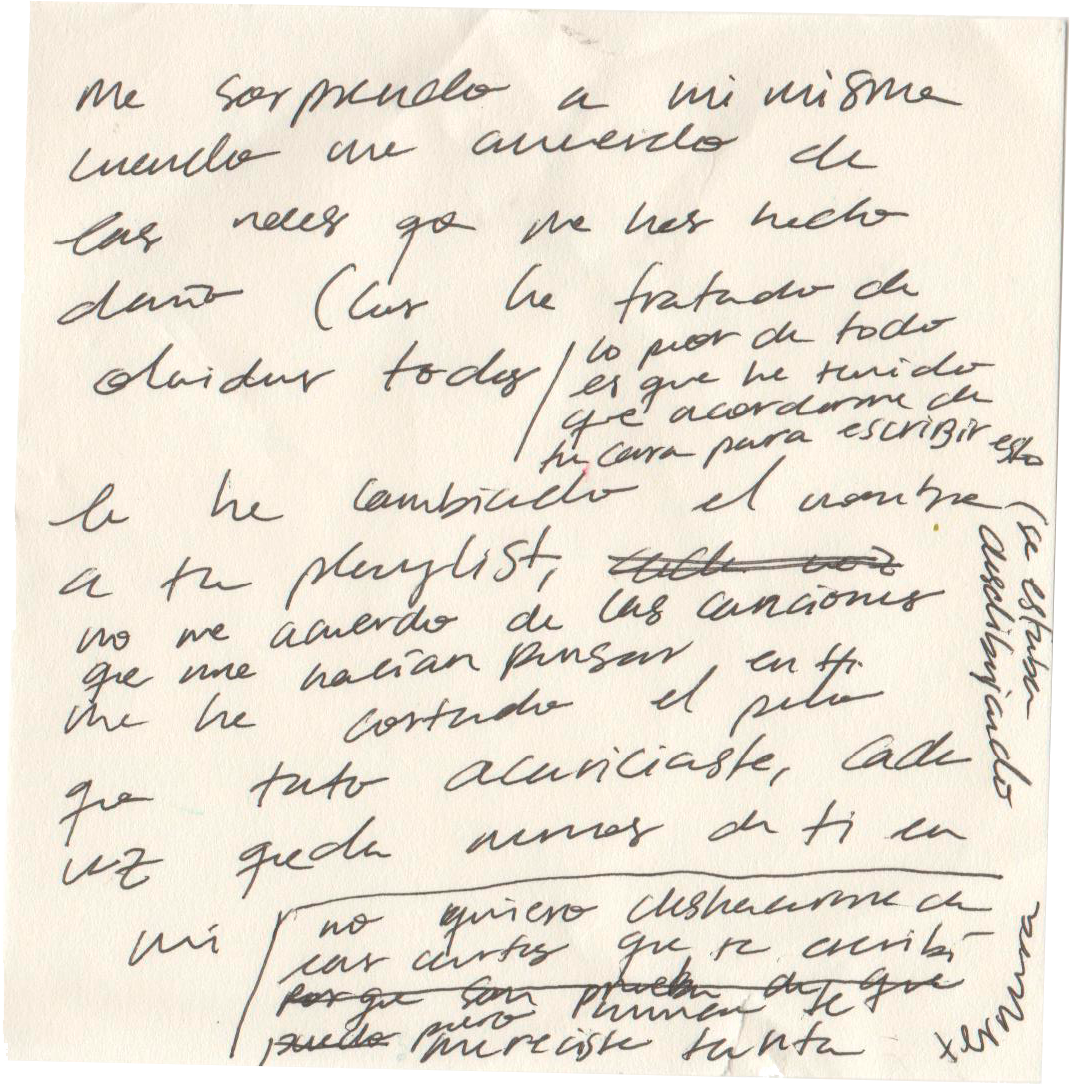 me sorprendo a mi misma
cuando me acuerdo de
las veces que me has hecho
daño (las he tratado de
olvidar todas
lo peor de todo
es que he tenido
que acordarme de
tu cara para escribir esto
(se estaba
desdibujando
le he cambiado el nombre
a tu playlist, cada vez
no me acuerdo de las canciones
que me hacían pensar en ti
me he cortado el pelo
que tuto acariciaste, cada
vez queda menos de ti en
mi
no quiero deshacerme de
las cartas que te escribí
porque son prueba de que
puedo pero nunca te
mereciste tanta
ternura